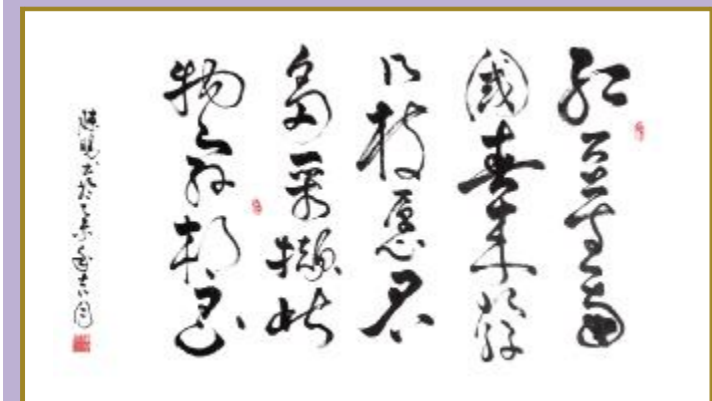 紅豆生南
國春来發
几枝愿君
多采擷此
物最相思